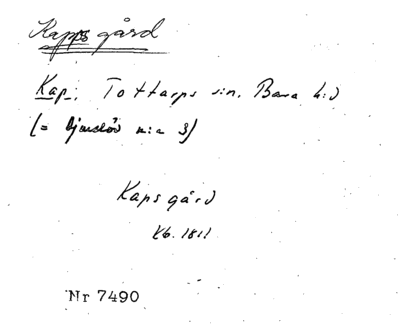 Kapps gård
Kap. Tottarps sn. Bara h:d
(= Djurslöv n:a 3)
Kaps gård
Kb. 1811
Nr 7490